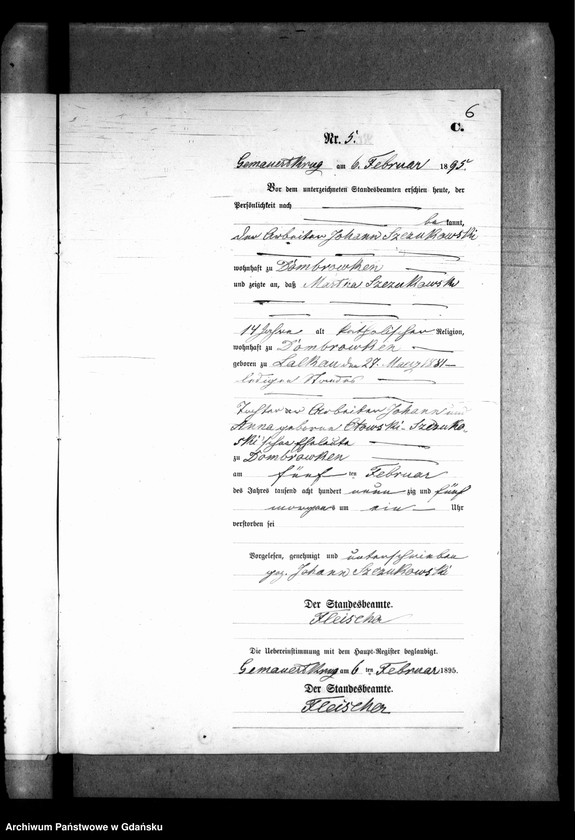 6
C.
Nr. 5.
Gemauertkrug am 6. Februar 1895.
Vor dem unterzeichneten Standesbeamten erschien heute, der
Persönlichkeit nach
bekannt,
der Arbeiter Johann Szczukowski
wohnhaft zu Dombrowken
und zeigte an, daß Martha Szczukowski
14 Jahre alt katholischer Religion,
wohnhaft zu Dombrowken
geboren zu Lalkau den 27. März 1881
ledigen Standes
Tochter der Arbeiter Johann und
Anna geborene Otowski-Szczukow-
ski'schen Eheleute
zu Dombrowken
am fünf ten Februar
des Jahres tausend acht hundert neun zig und fünf
morgens um ein Uhr
verstorben sei
Vorgelesen, genehmigt und unterschrieben
gez. Johann Szczukowski
Der Standesbeamte.
Fleischer
Die Uebereinstimmung mit dem Haupt-Register beglaubigt.
Gemauertkrug am 6 ten Februar 1895.
Der Standesbeamte.
Fleischer
Archiwum Państwowe w Gdańsku